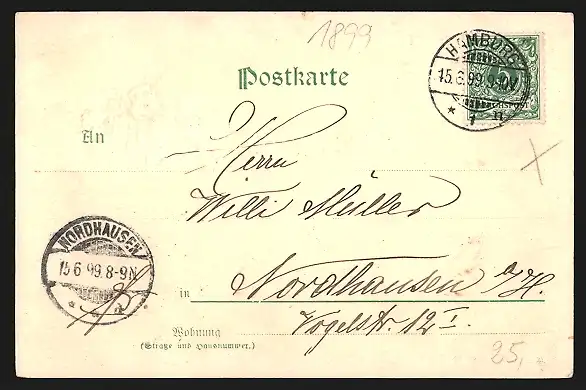 1899
HAMBURG
15.6.99.9-10V
* 1 n
Postkarte
An
Herrn
Willi Müller
NORDHAUSEN
15 6 99.8-9N
in Nordhausen a/H.
Vogelstr. 12 I.
Wohnung
(Straße und Hausnummer.)
25,